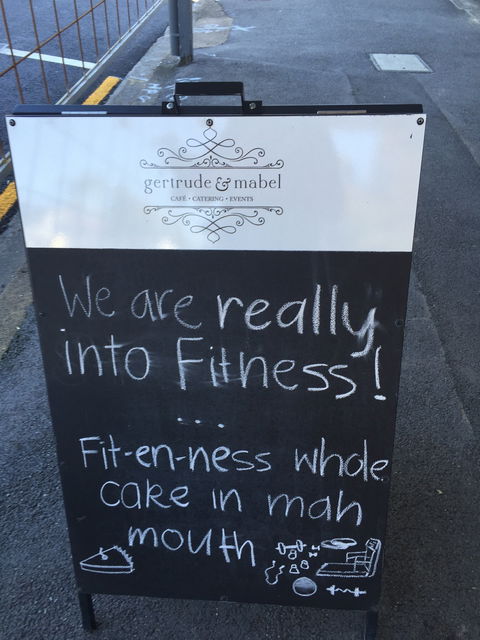 gertrude & mabel
CAFÉ • CATERING • EVENTS
We are really
into Fitness!
...
Fit-en-ness whole
cake in mah
mouth